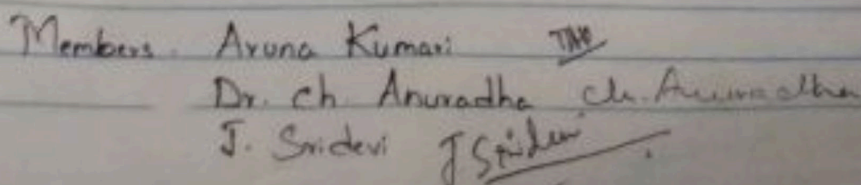 Members. Aruna Kumari
Dr. Ch Anuradha Ch. Anuradha
J. Sridevi J Sridevi